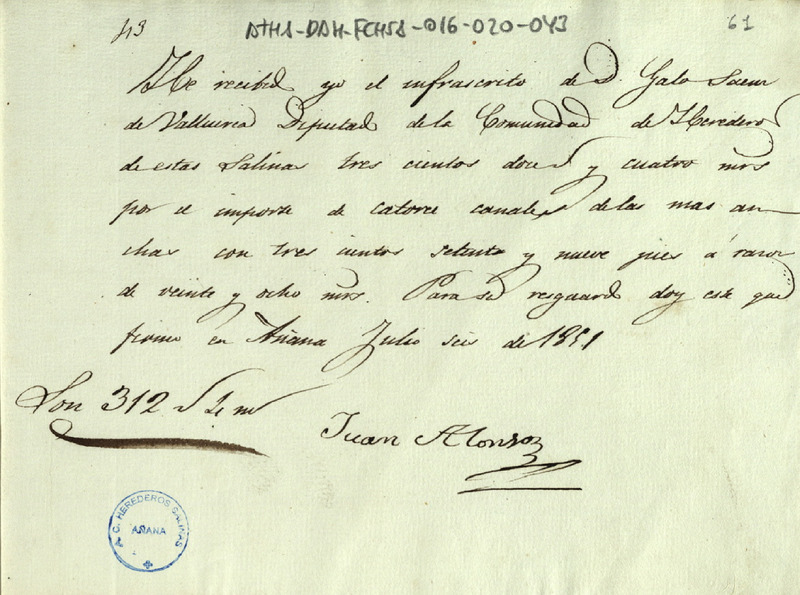 43 ATHA-DAH-FCHSA-016-020-043 61
He recibido yo el infrascrito de D. Galo Saenz
de Valluerca Diputado de la Comunidad de Herederos
de estas Salinas tres cientos doce rs y cuatro mrs
por el importe de catorce canales de las mas an-
chas con tres cientos setenta y nueve pies á razon
de veinte y ocho mrs. Para su resguardo doy este que
firmo en Añana Julio seis de 1851
Son 312 rs 4 mrs
Juan Alonso
A. C. HEREDEROS SALINAS
AÑANA